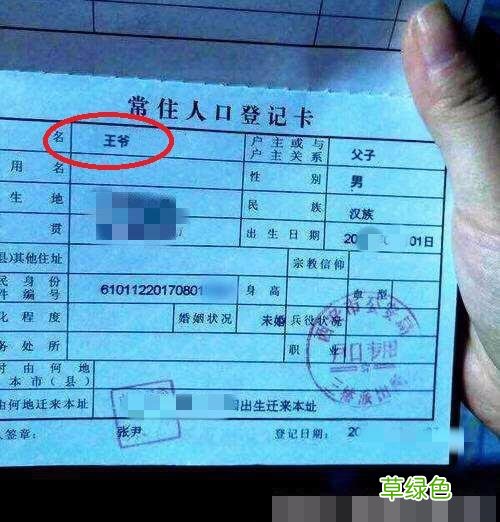 常住人口登记卡
名 王爷 户主或与户主关系 父子
用名 性别 男
生地 民族 汉族
贯 出生日期 20 01日
县)其他住址 宗教信仰
民身份
件编号 61011220170801 身高 血型
化程度 婚姻状况 未婚 兵役状况
务处所 职业
时由何地
本市(县)
由何地迁来本址 出生迁来本址
人签章: 张尹 登记日期: 20
户口专用
草绿色